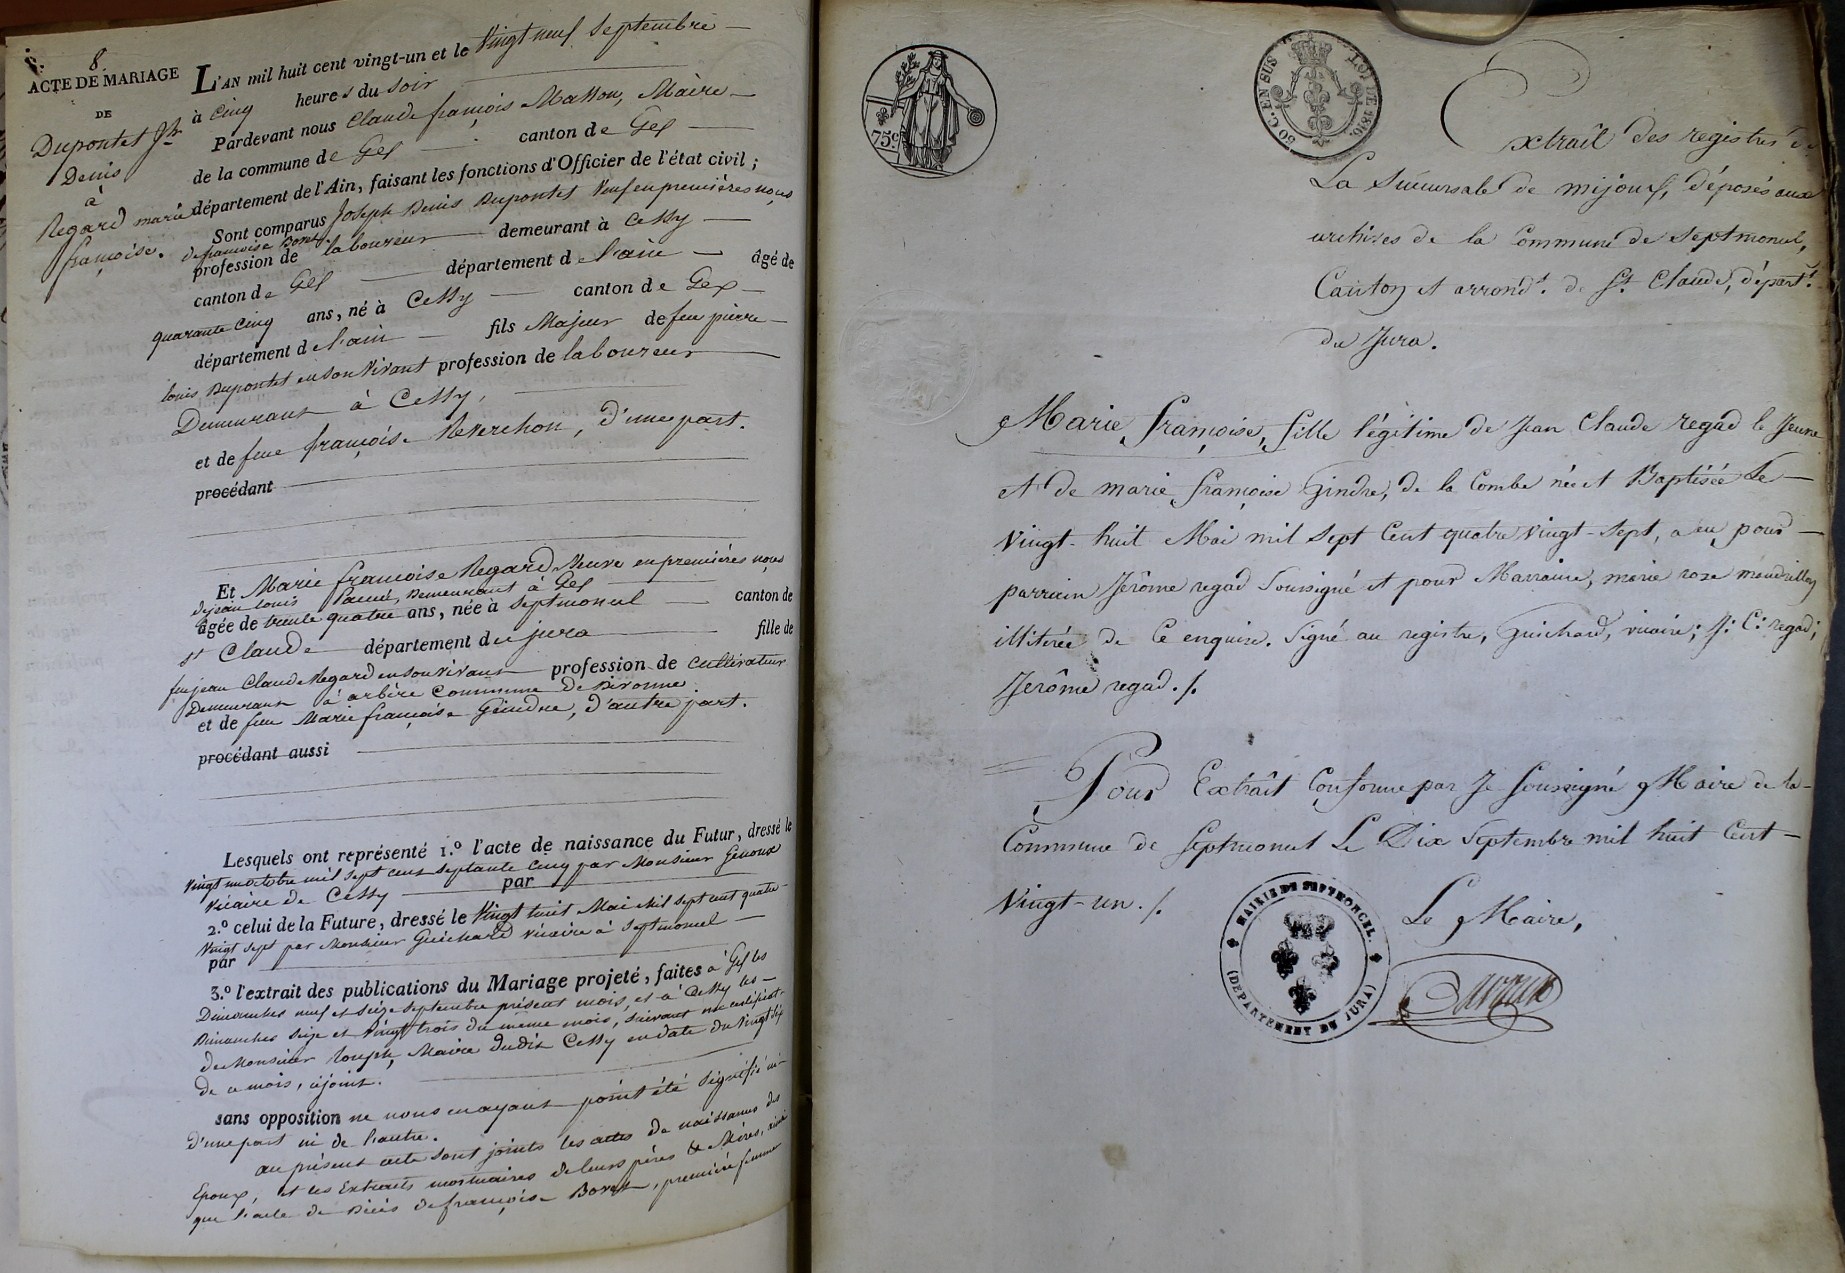 8.
ACTE DE MARIAGE
DE
Dupontet Jh
Denis
à
Regard marie
françoise.
L'AN mil huit cent vingt-un et le Vingt neuf Septembre
à Cinq heures du soir
Pardevant nous Claude françois Masson, Maire
de la commune de Gex canton de Gex
département de l'Ain, faisant les fonctions d'Officier de l'état civil ;
Sont comparus Joseph Denis Dupontet Veuf en premières noces
de françoise Boret
profession de laboureur demeurant à Cessy
canton de Gex département de l'ain âgé de
quarante Cinq ans, né à Cessy canton de Gex
département de l'ain fils Majeur de feu pierre
louis Dupontet en son Vivant profession de laboureur
Demeurant à Cessy,
et de feue françoise Reverchon, d'une part.
procédant
Et Marie françoise Regard Veuve en premières noces
de jean louis Demeurant à Gex
âgée de trente quatre ans, née à Septmoncel canton de
St Claude département du jura fille de
feu jean Claude Regard en son vivant profession de cultivateur
Demeurant à arbère Commune De Divonne
et de feue Marie françoise Geindre, d'autre part.
procédant aussi
Lesquels ont représenté 1.º l'acte de naissance du Futur, dressé le
Vingt un octobre mil sept cent septante cinq par Monsieur Genoux
Vicaire de Cessy par
2.º celui de la Future, dressé le Vingt huit Mai Mil sept cent quatre
Vingt sept par Monsieur Guichard Vicaire à Septmoncel
par
3.º l'extrait des publications du Mariage projeté, faites à Gex les
Dimanches neuf et seize Septembre présent mois, et à Cessy les
Dimanches Seize et Vingt trois du même mois, suivant un certificat
de Monsieur Maire dudit Cessy en date du Vingt six
de ce mois, cijoint.
sans opposition ne nous en ayant point été signifié ni
D'une part ni de l'autre.
au présent acte sont joints les actes de naissances des
Epoux, et les Extraits mortuaires de leurs pères & Mères, ainsi
que l'acte de Décès de françoise Boret, première femme
75 c.
50 C. EN SUS
LOI DE 1816.
Extrait des registres de
La Succursale de mijoux, déposés aux
archives de la Commune de Septmoncel,
Canton et arrondt. de St. Claude, départt.
du Jura.
Marie françoise, fille légitime de Jean Claude regad le Jeune
et de marie françoise Gindre, de la Combe née et Baptisée Le
Vingt-huit Mai mil Sept Cent quatre Vingt-Sept, a eu pour
parrain Jerôme regad Soussigné et pour Marraine, marie roze mandrillon
illitérée de Ce enquise. Signé au registre, Guichard, vicaire; J: C: regad;
Jerôme regad./.
Pour Extrait Conforme par Je Soussigné Maire de la
Commune de Septmoncel Le Dix Septembre mil huit Cent
Vingt-un./.
MAIRIE DE SEPTMONCEL.
(DEPARTEMENT DU JURA)
Le Maire,